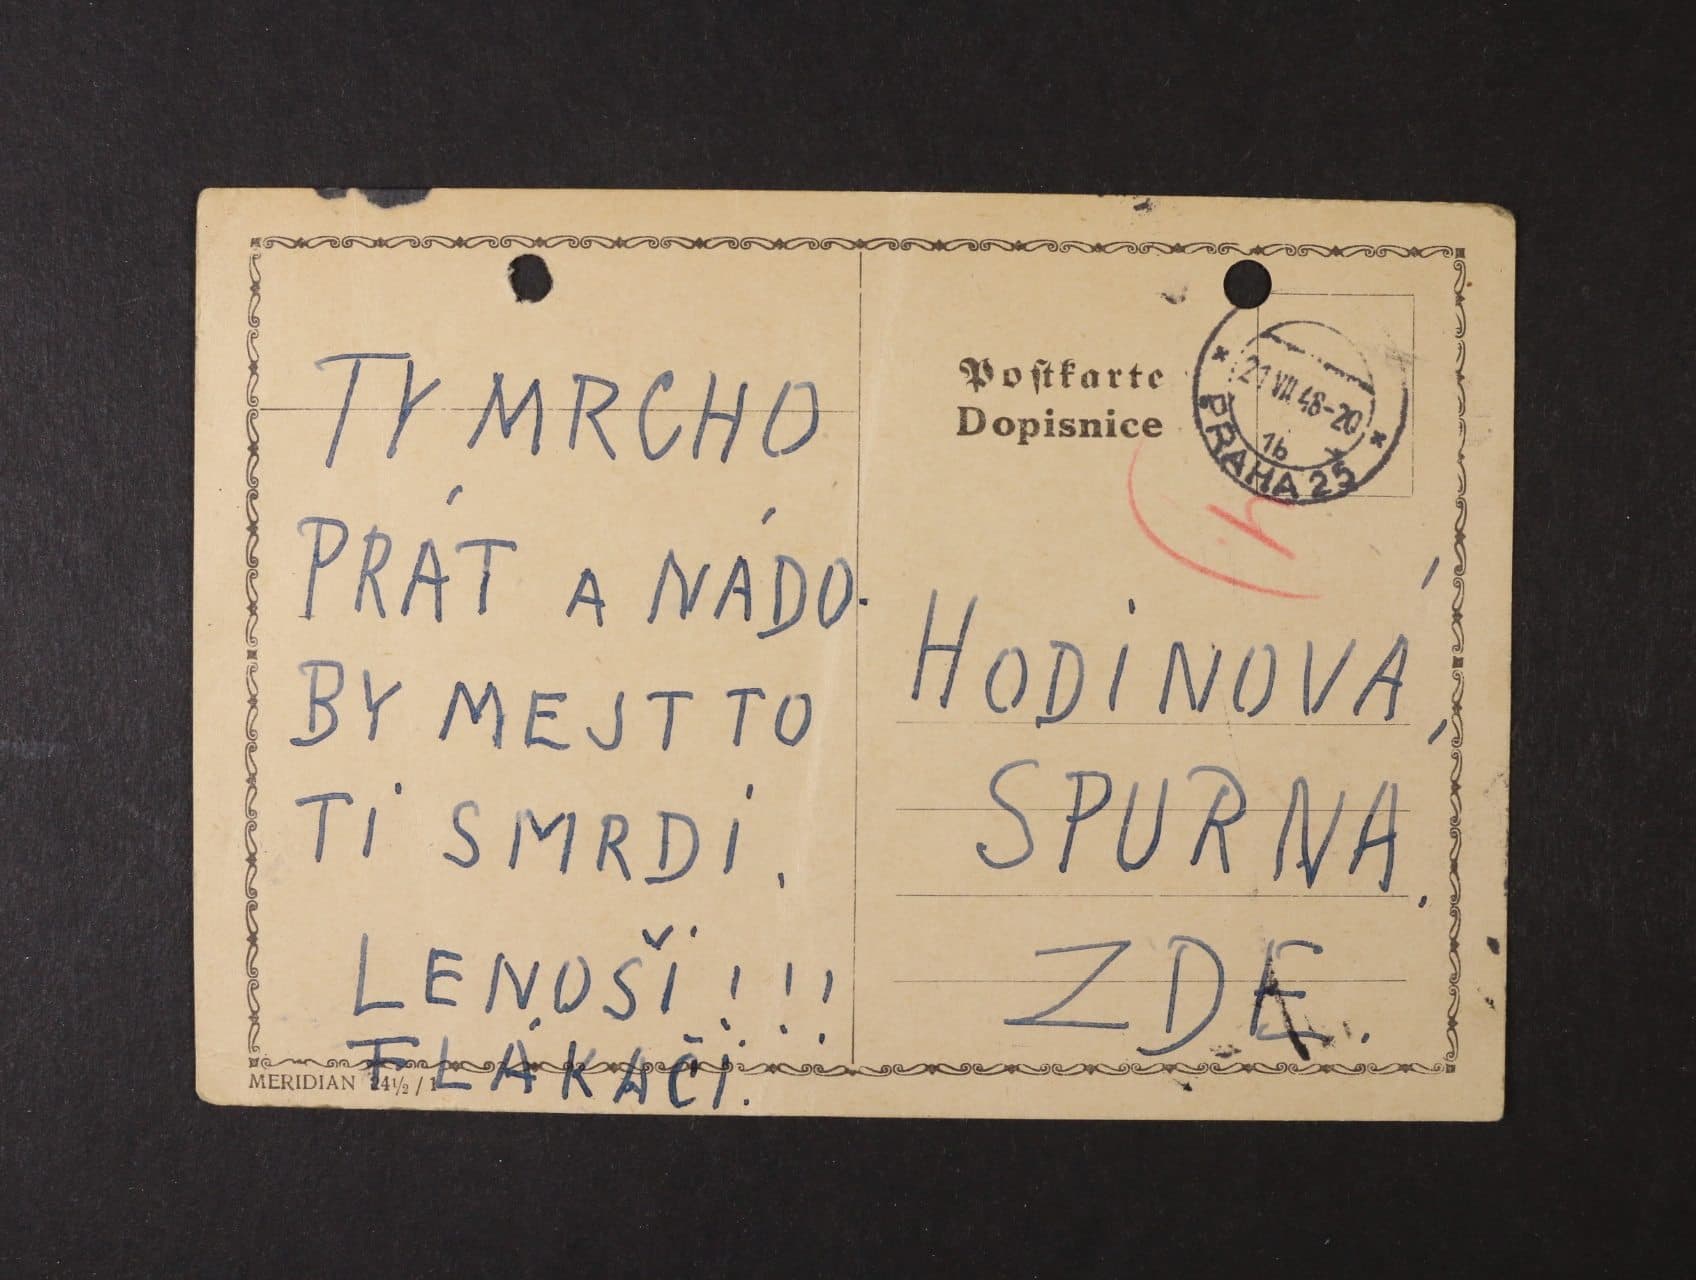 TY MRCHO
PRÁT A NÁDO-
BY MEJT TO
TI SMRDÍ.
LENOŠI!!!
FLÁKAČI.
MERIDIAN 24½ / 1
Postkarte
Dopisnice
21 VII 48-20
1b
PRAHA 25
HODINOVÁ,
SPURNÁ.
ZDE.